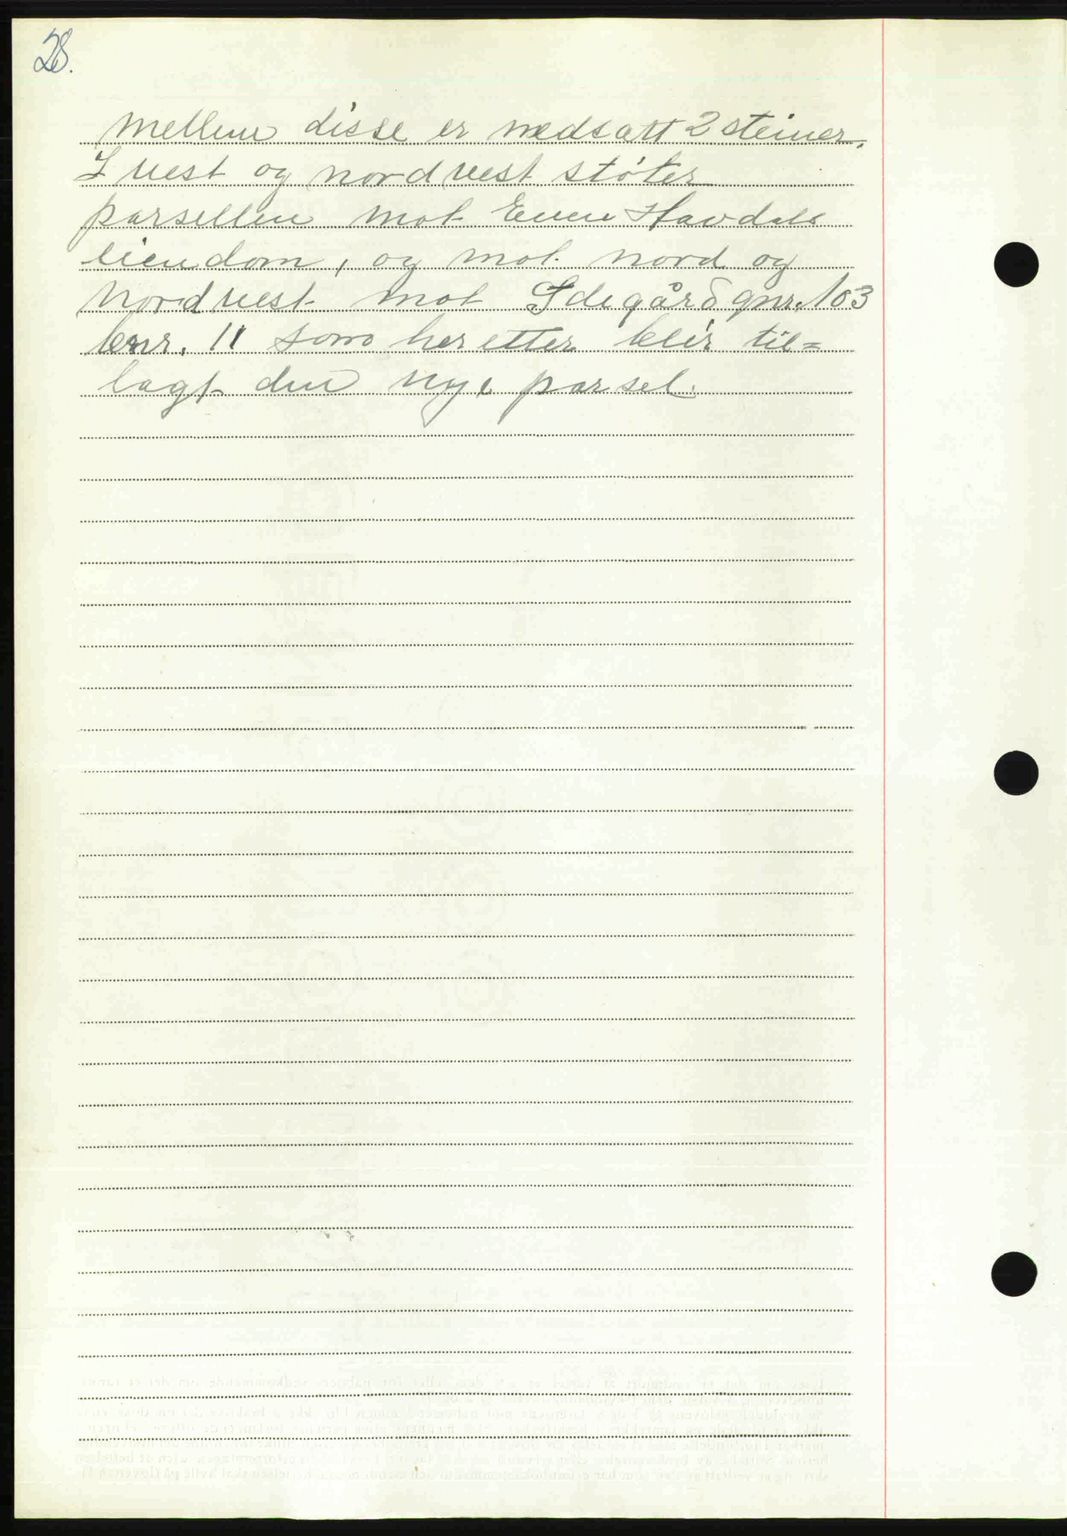 28.
mellem disse er nedsatt 2 steiner.
I vest og nordvest støter
parsellen mot Even Havdals
eiendom, og mot nord og
nordvest mot Idegård gnr. 103
bnr. 11 som heretter blir til=
lagt den nye parsel.